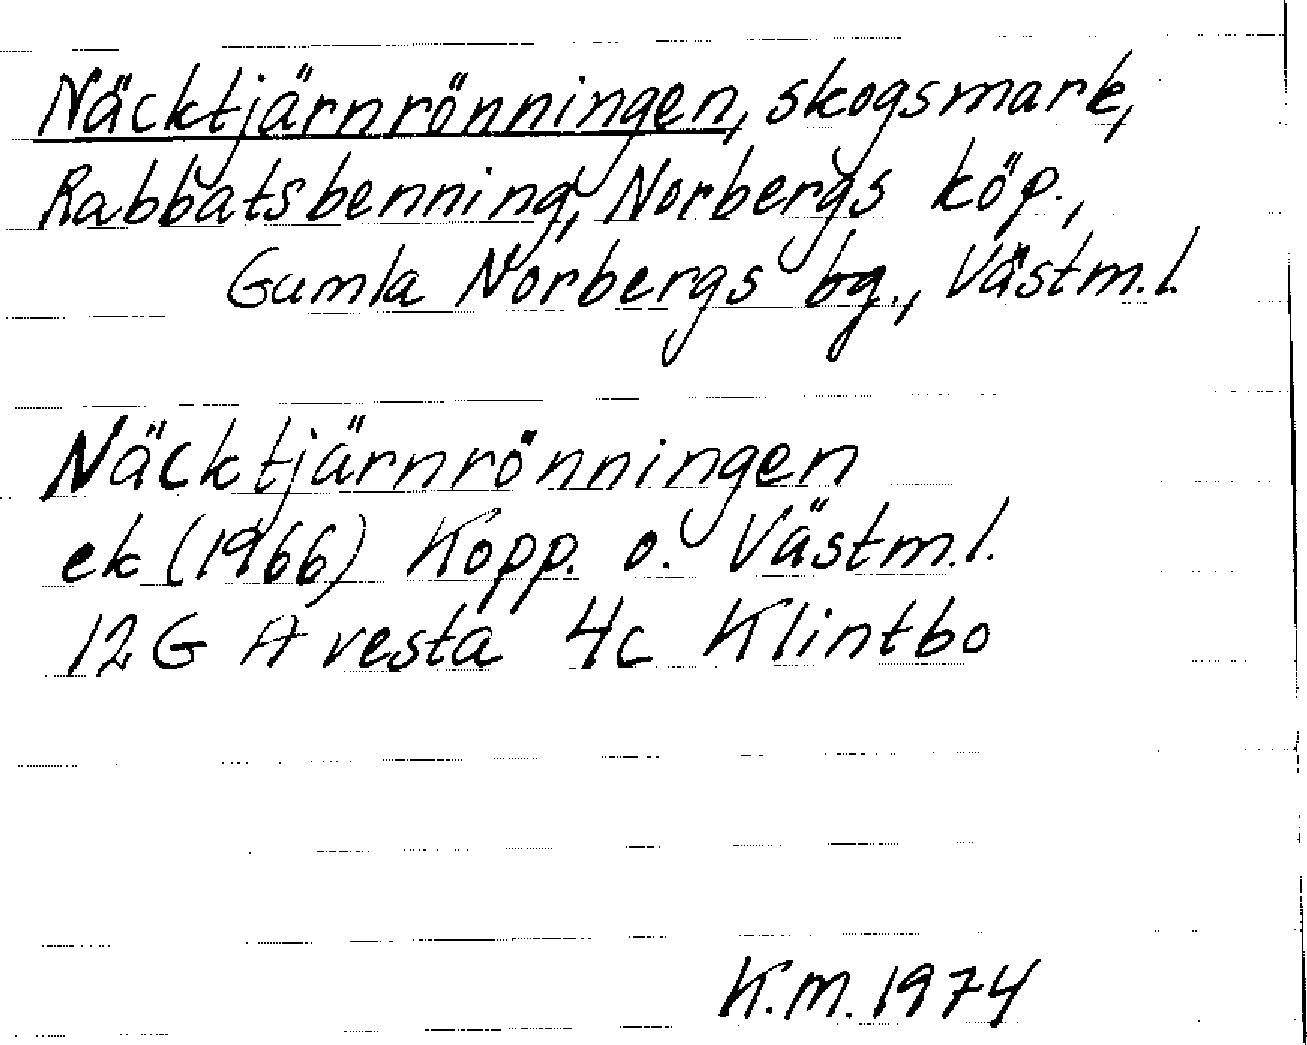 Näcktjärnrönningen, skogsmark,
Rabbatsbenning, Norbergs köp.,
Gamla Norbergs bg., Västm.l.
Näcktjärnrönningen
ek (1966) Kopp. o. Västm.l.
12G Avesta 4c Klintbo
K.M. 1974